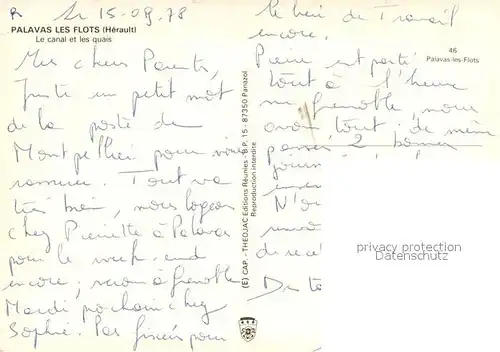 R Sr 15-09-78
PALAVAS LES FLOTS (Hérault)
Le canal et les quais
Mes chers Parents,
Juste un petit mot
de la poste de
Montpellier pour vous
rassurer. Tout va
très bien, nous logeons
chez Pierrette à Palavas
pour le week-end
encore, serons à Grenoble
Mardi prochain chez
Sophie. Pas fixés pour
(E) CAP. - THEOJAC Editions Réunies - B.P. 15 - 87350 Panazol
Reproduction interdite
le lieu de Travail
encore.
46
Palavas-les-Flots
Pierre est parti
tout à l'heure
sur Grenoble nous
avons tout de même
passé 2 bonnes
N'ou
privacy protection
Datenschutz